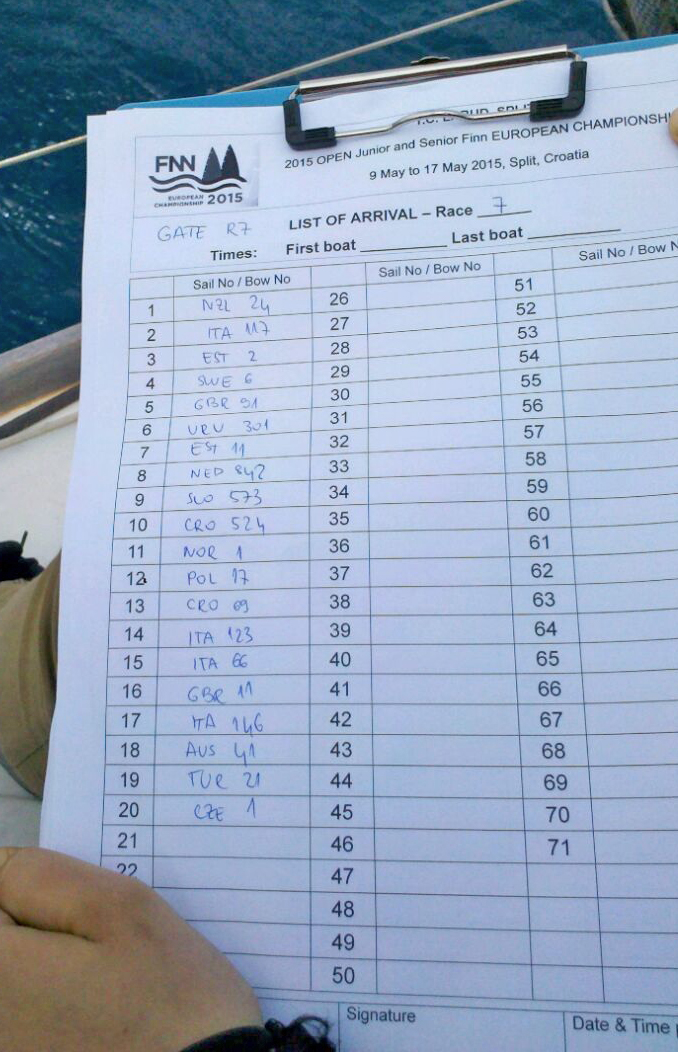 SPLIT
2015 OPEN Junior and Senior Finn EUROPEAN CHAMPIONSHI
9 May to 17 May 2015, Split, Croatia
FNN
EUROPEAN
CHAMPIONSHIP 2015
GATE R7
LIST OF ARRIVAL – Race 7
Times: First boat Last boat
Sail No / Bow No Sail No / Bow No Sail No / Bow N
1 NZL 24 26 51
2 ITA 117 27 52
3 EST 2 28 53
4 SWE 6 29 54
5 GBR 91 30 55
6 URU 301 31 56
7 EST 11 32 57
8 NED 842 33 58
9 SLO 573 34 59
10 CRO 524 35 60
11 NOR 1 36 61
12 POL 17 37 62
13 CRO 69 38 63
14 ITA 123 39 64
15 ITA 66 40 65
16 GBR 11 41 66
17 ITA 146 42 67
18 AUS 41 43 68
19 TUR 21 44 69
20 CZE 1 45 70
21 46 71
22 47
48
49
50
Signature Date & Time